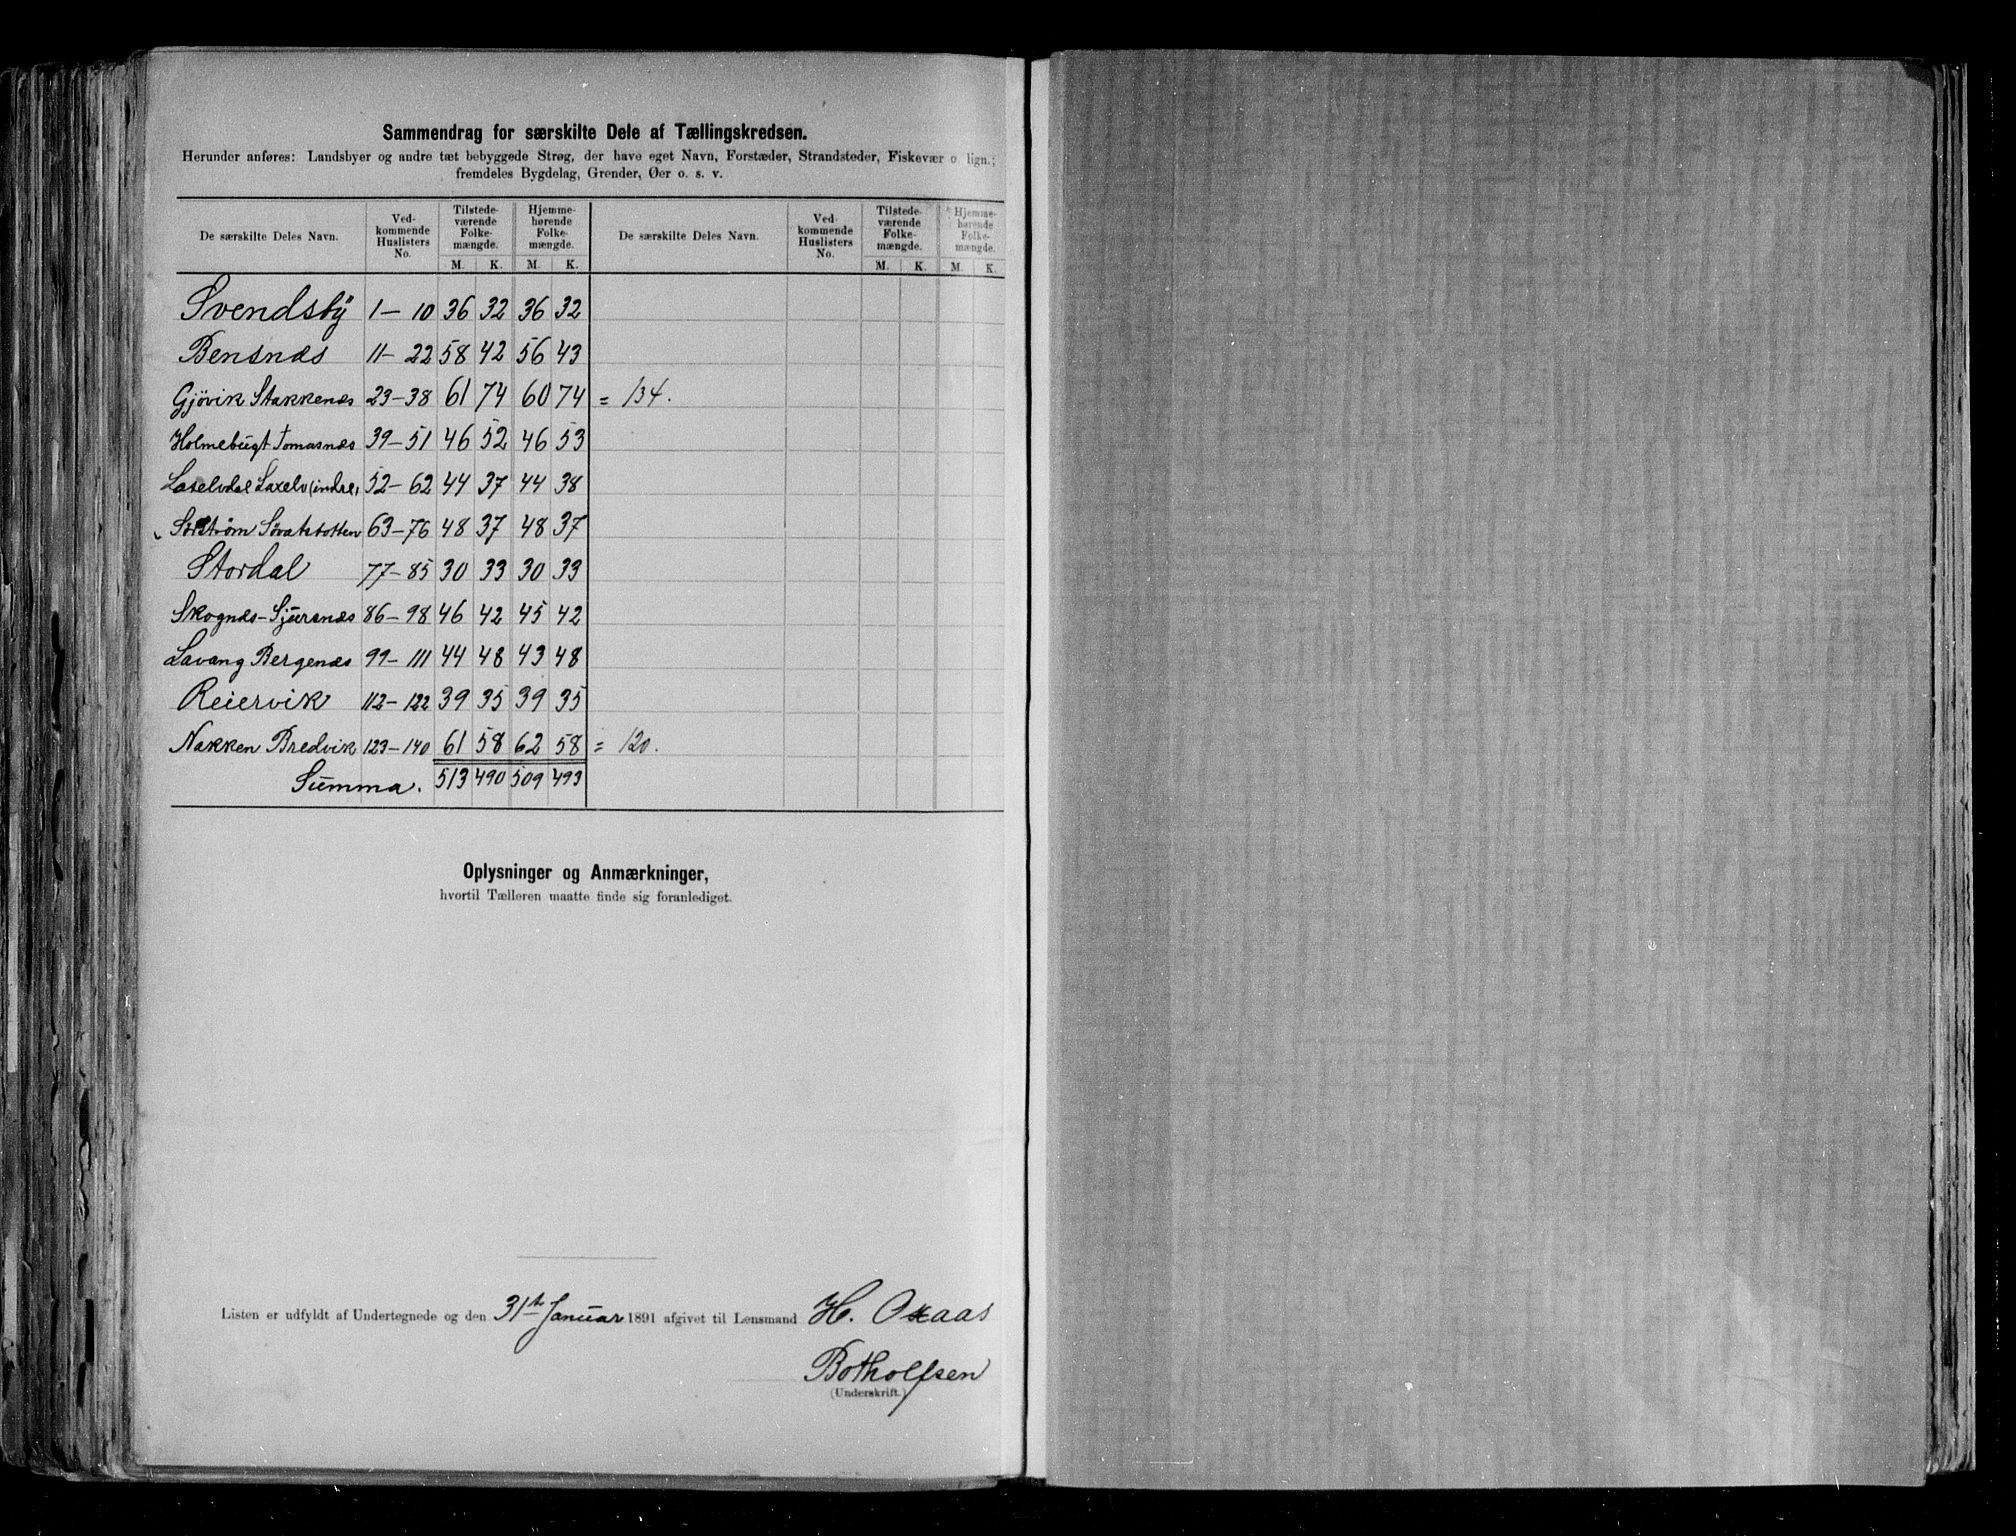 Sammendrag for særskilte Dele af Tællingskredsen.
Herunder anføres: Landsbyer og andre tæt bebyggede Strøg, der have eget Navn, Forstæder, Strandsteder, Fiskevær o. lign.;
fremdeles Bygdelag, Grender, Øer o. s. v.
De særskilte Deles Navn. Ved-kommende Huslisters No. Tilstede-værende Folke-mængde. Hjemme-hørende Folke-mængde. De særskilte Deles Navn. Ved-kommende Huslisters No. Tilstede-værende Folke-mængde. Hjemme-hørende Folke-mængde.
M. K. M. K. M. K. M. K.
Svendsby 1-10 36 32 36 32
Bensnæs 11-22 58 42 56 43
Gjövik Stakkenæs 23-38 61 74 60 74 = 134.
Holmebugt Tomasnæs 39-51 46 52 46 53
Lakselvdal Laxelv (indre) 52-62 44 37 44 38
Sörström Sövatstotten 63-76 48 37 48 37
Stordal 77-85 30 33 30 33
Skognæs-Sjursnæs 86-98 46 42 45 42
Lavang Bergenæs 99-111 44 48 43 48
Reiervik 112-122 39 35 39 35
Nakken Bredvik 123-140 61 58 62 58 = 120.
Summa. 513 490 509 493
Oplysninger og Anmærkninger,
hvortil Tælleren maatte finde sig foranlediget.
Listen er udfyldt af Undertegnede og den 31te Januar 1891 afgivet til Lensmand H. Oxaas
Botholfsen
(Underskrift.)